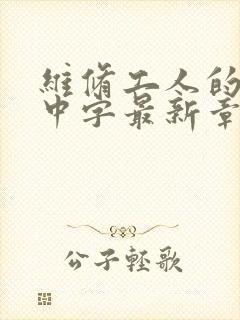 維脩工人的
中字最新章
公子輕歌